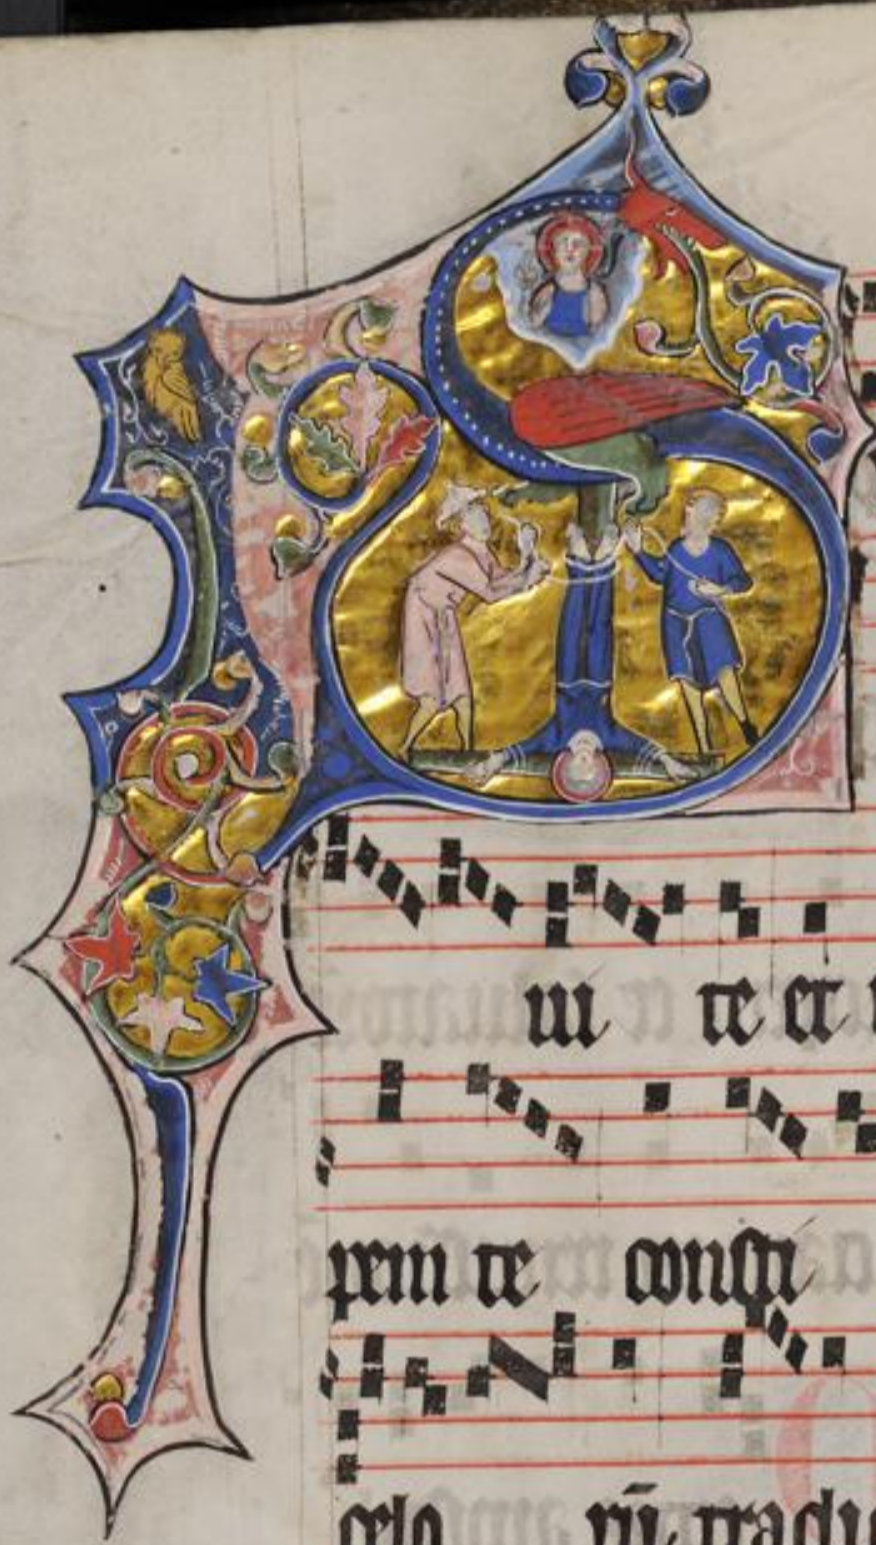 S
ui te et
pem te consti
celo rū tradi